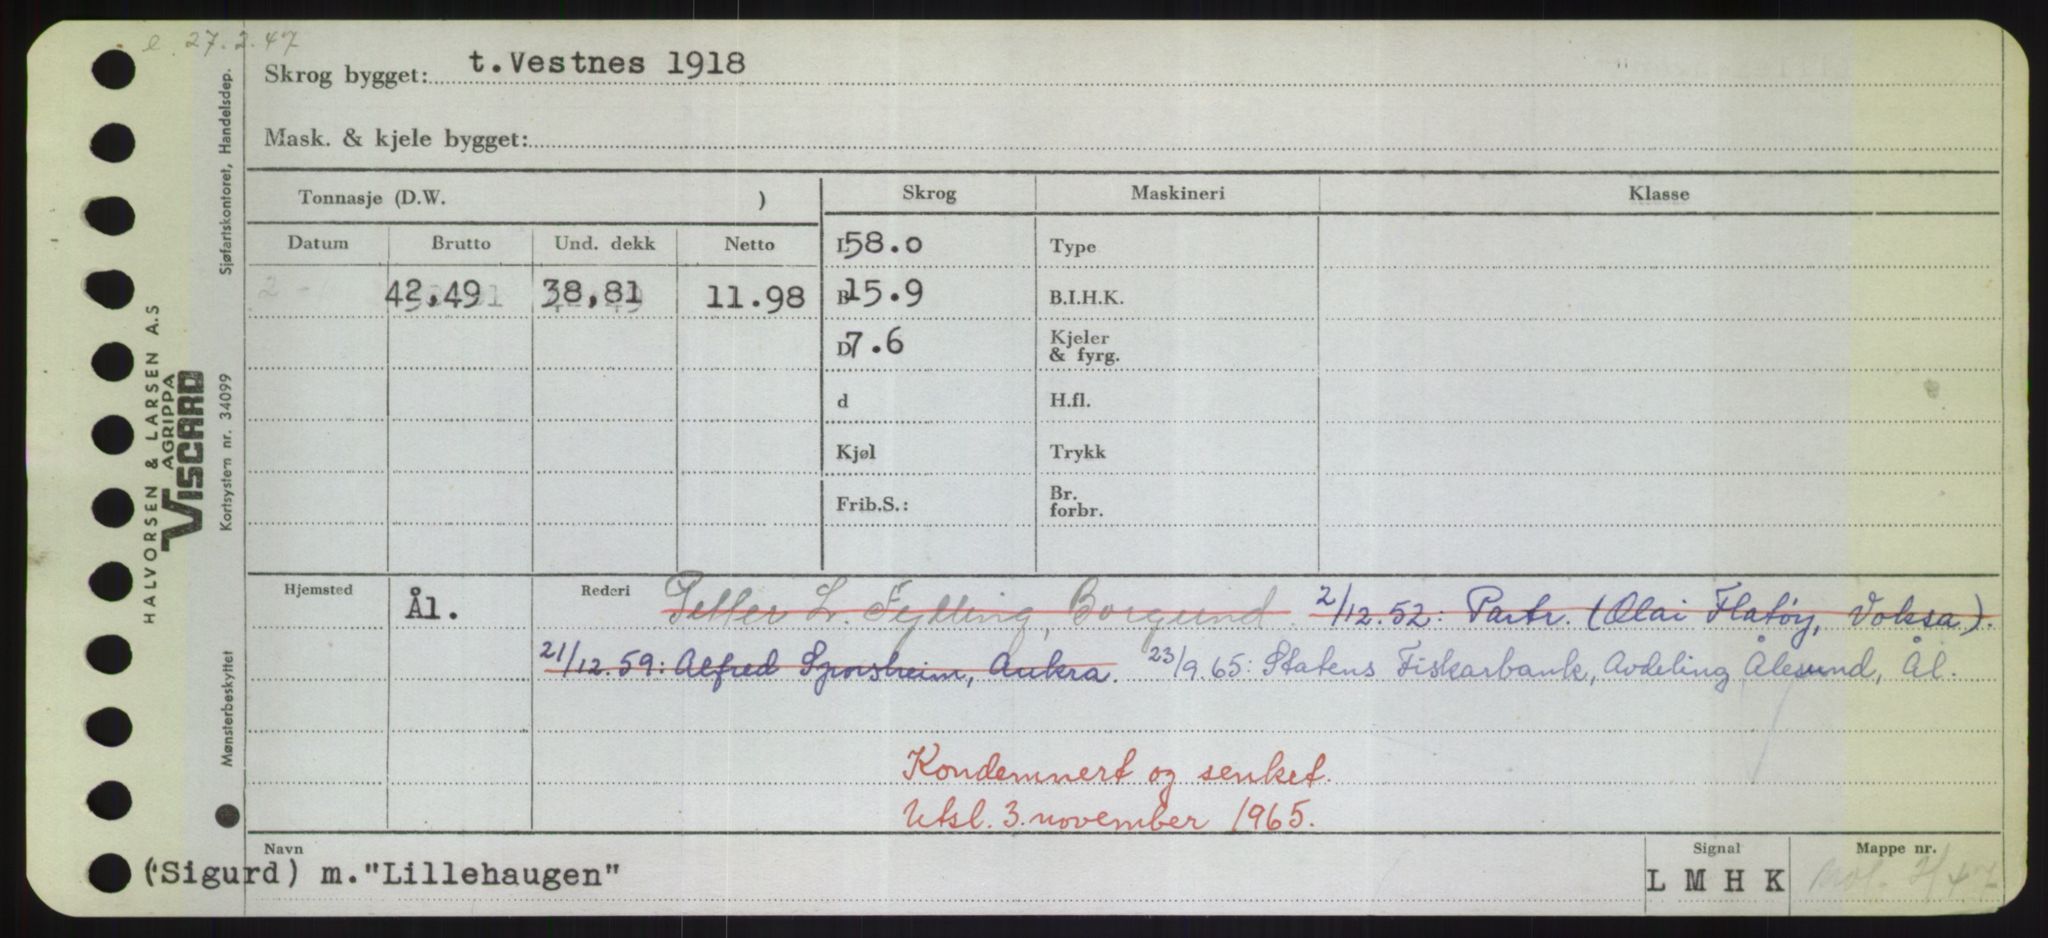 e 27.2.47
Skrog bygget: t. Vestnes 1918
Mask. & kjele bygget:
Tonnasje (D.W. )
Skrog Maskineri Klasse
Datum Brutto Und. dekk Netto
42,49 38,81 11.98
L 58.0 Type
B 15.9 B.I.H.K.
D 7.6 Kjeler & fyrg.
d H.fl.
Kjøl Trykk
Frib.S.: Br. forbr.
Hjemsted Ål. Rederi Petter L. Fylling, Borgund. 2/12.52: Partr. (Olai Flatøy, Voksa).
21/12.59: Alfred Sporsheim, Aukra. 23/9.65: Statens Fiskarbank, Avdeling Ålesund, Ål.
Kondemnert og senket.
Utsl. 3. november 1965.
Navn Signal Mappe nr.
(Sigurd) m. "Lillehaugen" L M H K 2/47
HALVORSEN & LARSEN A.S
AGRIPPA
VISCARD
Mønsterbeskyttet Kortsystem nr. 34099 Sjøfartskontoret, Handelsdep.